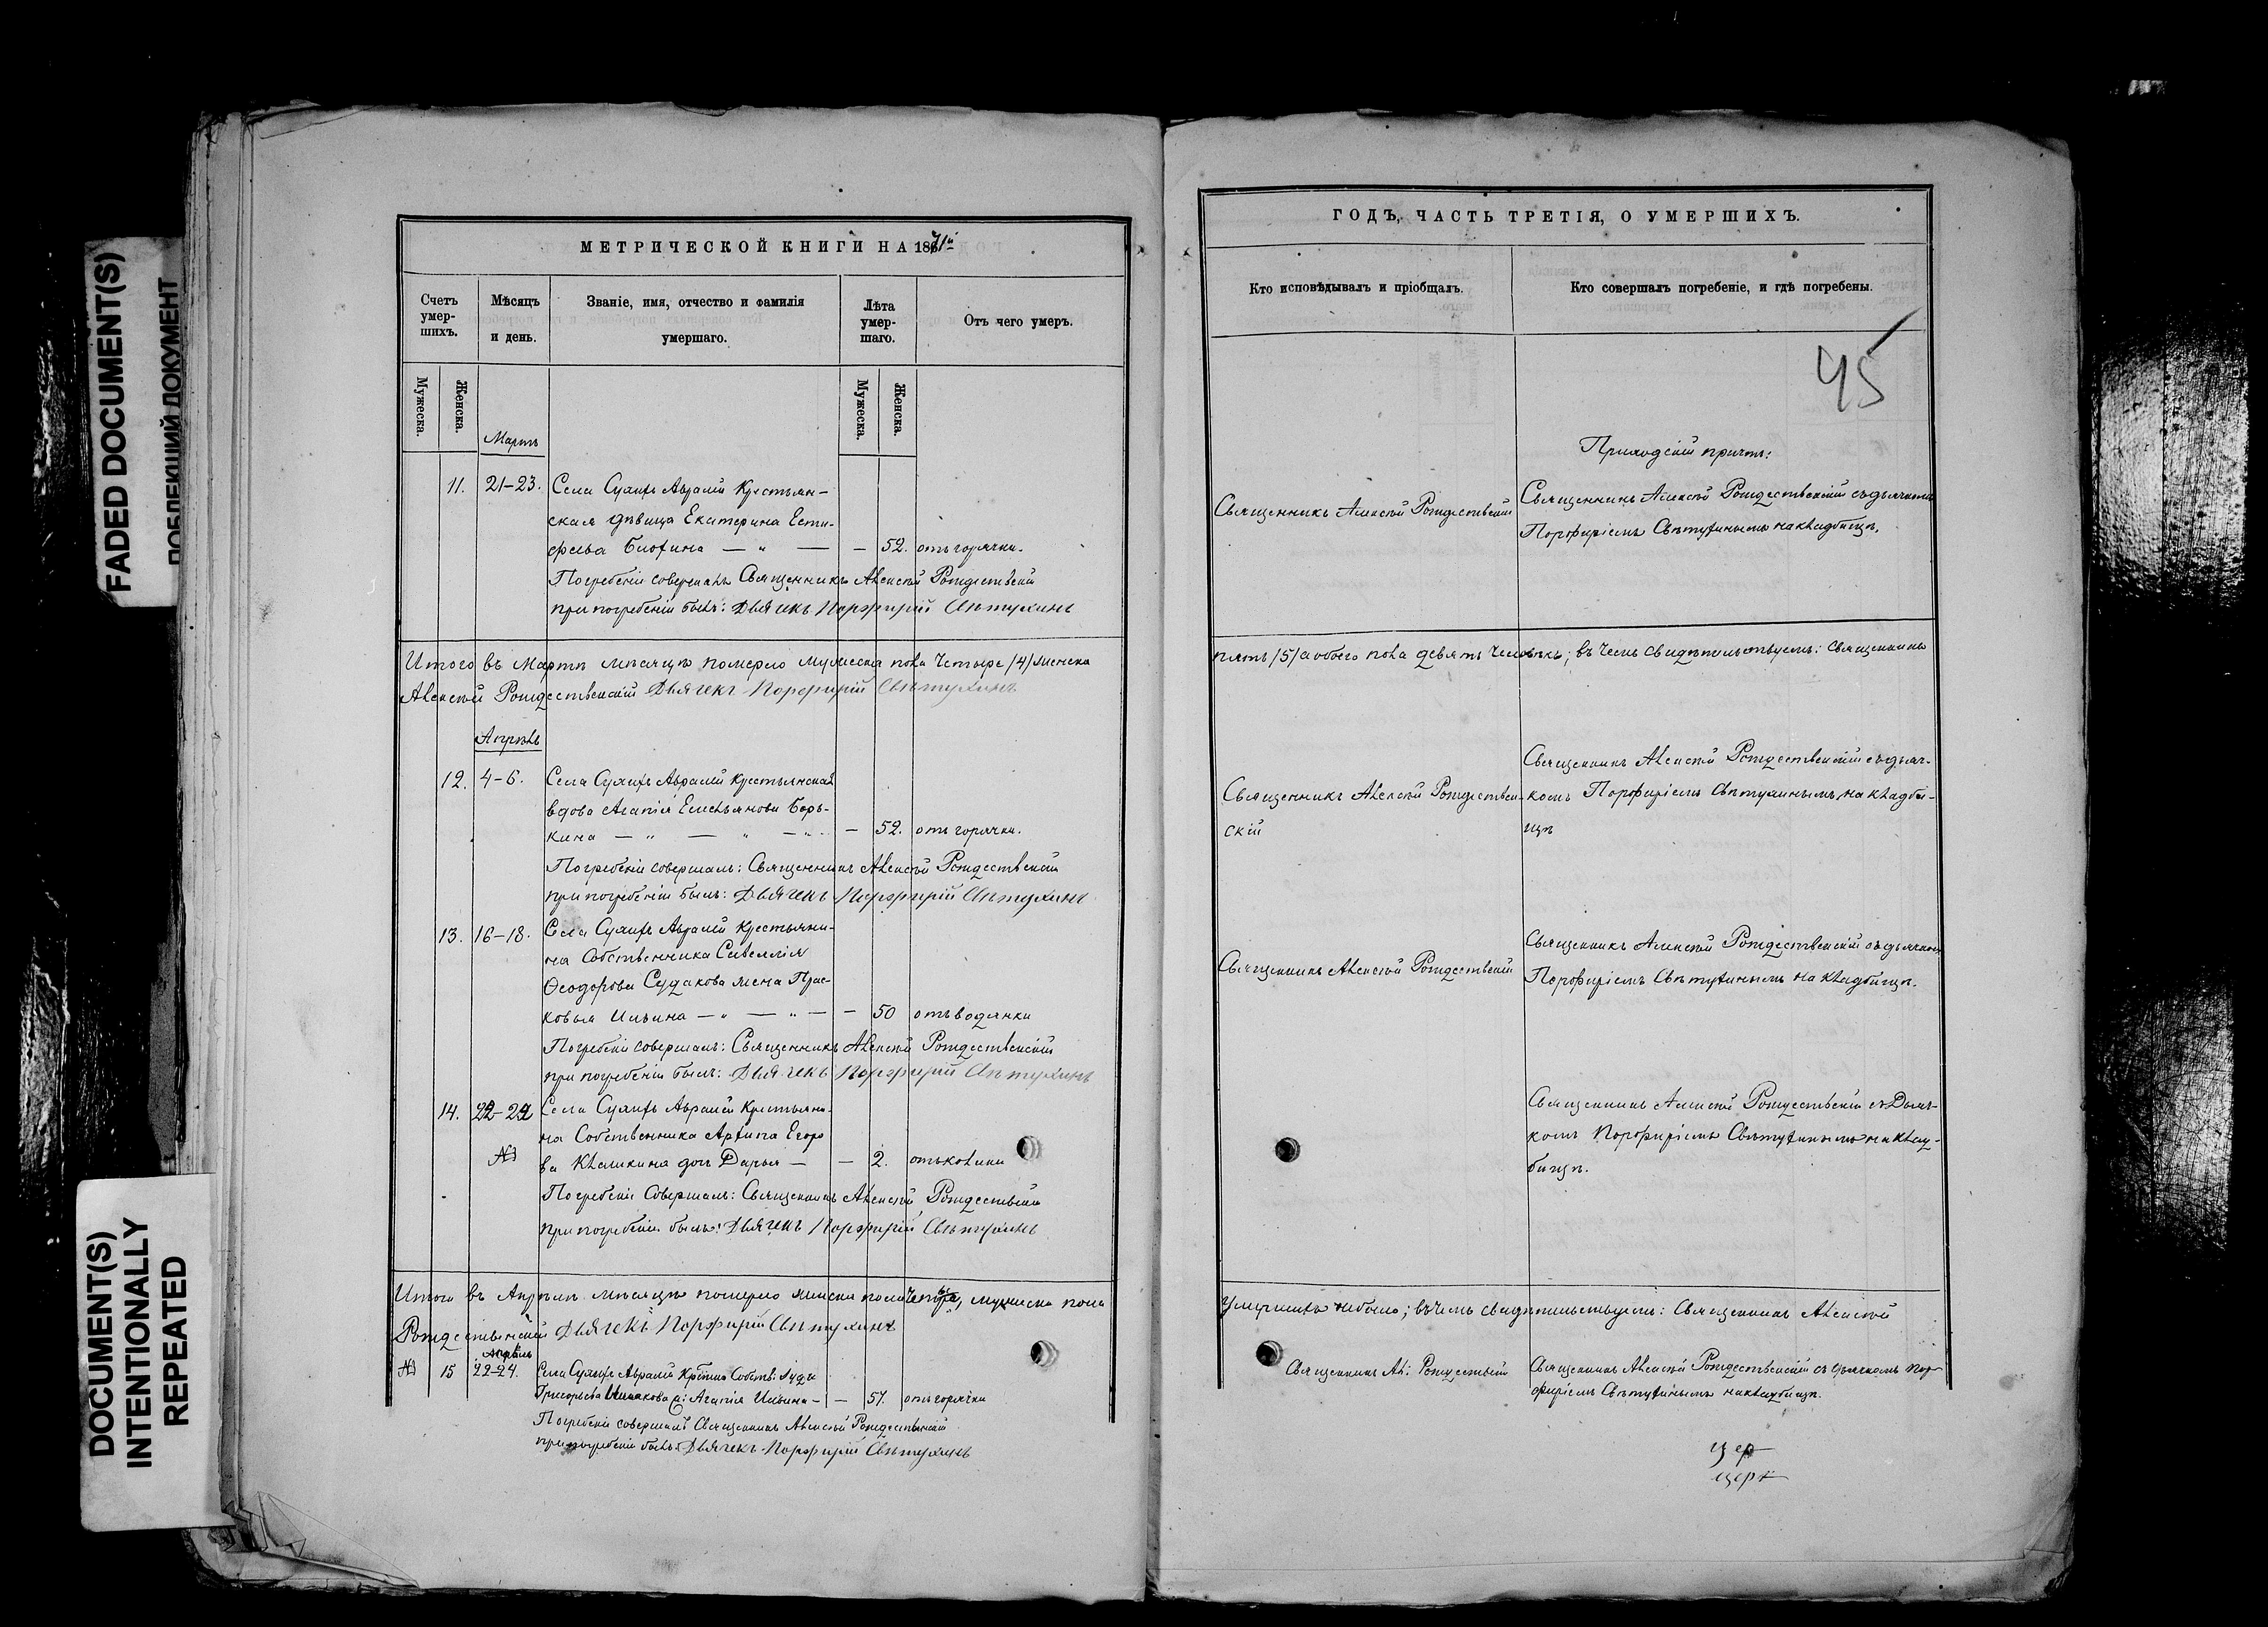 FADED DOCUMENT(S)
ДОКУМЕНТ
DOCUMENT(S)
INTENTIONALLY
REPEATED
МЕТРИЧЕСКОЙ КНИГИ НА 1871й
Счетъ умер-шихъ.
Мѣсяцъ и день.
Званіе, имя, отчество и фамилія умершаго.
Лѣта умер-шаго.
Отъ чего умеръ.
Мужеска.
Женска.
Мартъ
Мужеска.
Женска.
11. 21-23. Села Авралей Крестьян-
ская дѣвица Екатерина
— " — — 52. отъ горячки.
Погребеніе совершалъ Священникъ Алексѣй Рождественскій
при погребеніи былъ: Дьячекъ Порфирій Свѣтухинъ
Итого въ Мартѣ мѣсяцѣ померло мужеска пола четыре /4/ женска
Алексѣй Рождественскій Дьячекъ Порфирій Свѣтухинъ
Апрѣль
12. 4-6. Села Авралей Крестьянская
вдова Агапія Емельянова Борь-
кина — " — " — " — 52. отъ горячки.
Погребеніе совершалъ: Священникъ Алексѣй Рождественскій
при погребеніи былъ: Дьячекъ Порфирій Свѣтухинъ
13. 16-18. Села Авралей Крестьяни-
на Собственника
Ѳеодорова Судакова жена Прас-
ковья Ильина — " — " — — 50 отъ водянки
Погребеніе совершалъ: Священникъ Алексѣй Рождественскій
при погребеніи былъ: Дьячекъ Порфирій Свѣтухинъ
14. 22-22 Села Авралей Крестьяни-
на Собственника Архипа Егоро
ва дочь Дарья — — 2. отъ
Погребеніе Совершалъ: Священникъ Алексѣй Рождественскій
при погребеніи былъ: Дьячекъ Порфирій Свѣтухинъ
Итого въ Апрѣлѣ мѣсяцѣ померло женска пола четыре, мужеска пола
Рождественскій Дьячекъ Порфирій Свѣтухинъ
Апрѣль
15 22-24. Села Авралей Собств:
Григорьева Агапія Ильина — — 57. отъ горячки
Погребеніе совершалъ Священникъ Алексѣй Рождественскій
при погребеніи былъ: Дьячекъ Порфирій Свѣтухинъ
ГОДЪ, ЧАСТЬ ТРЕТІЯ, О УМЕРШИХЪ.
Кто исповѣдывалъ и пріобщалъ.
Кто совершалъ погребеніе, и гдѣ погребены.
45
Приходскій причтъ:
Священникъ Алексѣй Рождественскій
Священникъ Алексѣй Рождественскій съ дьячкомъ
Порфиріемъ Свѣтухинымъ на кладбищѣ.
пять /5/ а обоего пола девять человѣкъ; въ чемъ свидѣтельствуемъ: Священникъ
Священникъ Алексѣй Рождествен-
скій
Священникъ Алексѣй Рождественскій съ дьяч-
комъ Порфиріемъ Свѣтухинымъ, на кладби-
щѣ
Священникъ Алексѣй Рождественскій
Священникъ Алексѣй Рождественскій съ дьячкомъ
Порфиріемъ Свѣтухинымъ на кладбищѣ.
Священникъ Алексѣй Рождественскій съ Дьяч-
комъ Порфиріемъ Свѣтухинымъ на клад-
бищѣ.
умершихъ небыло; въ чемъ свидѣтельствуемъ: Священникъ Алексѣй
Священникъ Ал: Рождественскій
Священникъ Алексѣй Рождественскій съ дьячкомъ Пор-
фиріемъ Свѣтухинымъ на кладбищѣ.